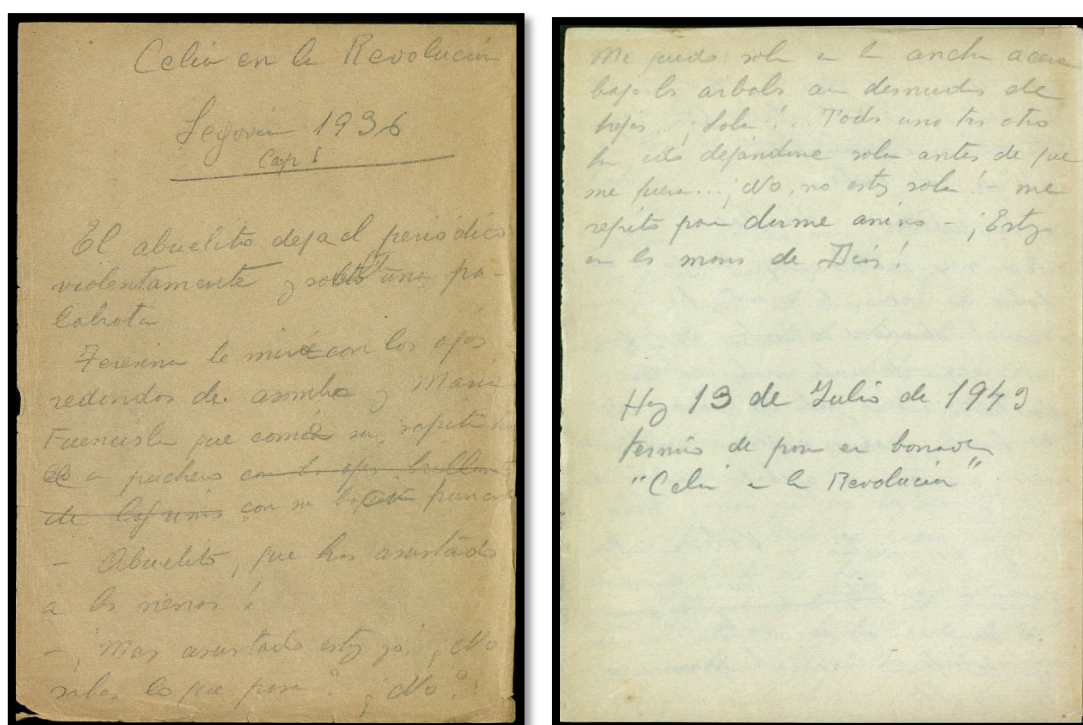 Celia en la Revolución
Segovia 1936
Cap I
El abuelito deja el periódico
violentamente y soltó una pa-
labrota
Teresina le mira con los ojos
redondos de asombro y María
Fuencisla que comía su sopita
a puchero con los ojos brillantes
de lágrimas con su
- Abuelito, que has asustado
a las nenas!
- ¡Mas asustado estoy yo! ¿No
sabes lo que pasa? ¿No?
Me quedo sola en la ancha acera
bajo los arboles aun desnudos de
hojas. ¡Sola! Todos uno tras otro
han ido dejandome sola antes de que
me fuera... ¡No, no estoy sola! - me
repito para darme animo - ¡Estoy
en las manos de Dios!
Hoy 13 de Julio de 1943
termino de poner en borrador
"Celia en la Revolución"